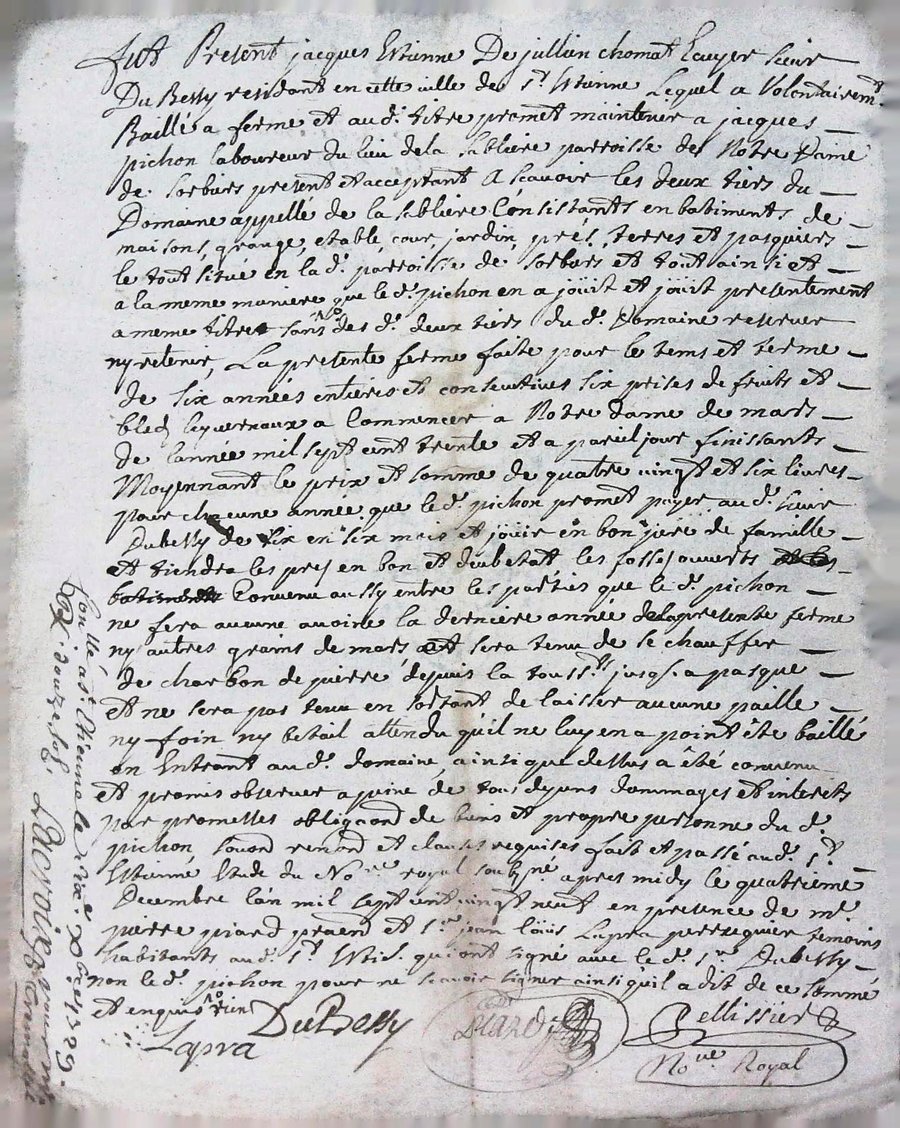 fut Present jacques Estienne De jullien chomat Ecuyer sieur
Du Bessy residant en cette ville de St. Estienne Lequel a Volontairemt.
Baillé a ferme et aud. titre promet maintenir a jacques
pichon laboureur du lieu dela sabliere parroisse de Notre Dame
de Sorbiers present et acceptant A scavoir les deux tiers du
Domaine appellé de la sabliere Consistants en batiments de
maisons, grange, etable, cour, jardin, prés, terres et pasquiers
le tout situé en lad. parroisse de Sorbiers et tout ainsi et
a la meme maniere que led. pichon en a jouit et jouit presentement
a meme titre sans des d. deux tiers du d. Domaine reserver
ny retenir, La presente ferme faite pour le tems et terme
de six années entieres et consecutives six prises de fruits et
bled a Commencer a Notre dame de mars
de l'année mil sept cent trente et a pareil jour finissants
Moyennant le prix et somme de quatre vingt et six livres
pour chacune année que led. pichon promet payer aud. sieur
Dubessy de six en six mois et jouir en bon pere de famille
et tiendra les prés en bon et deub etat les fossés ouverts
Convenu aussy entre les parties que led. pichon
ne fera aucune avoine la derniere année delapresente ferme
ny autres grains de mars et sera tenu de se chauffer
de charbon de pierre depuis la touss. jusq. a pasque
et ne sera pas tenu en sortant de laisser aucune paille
ny foin ny betail attendu qu'il ne luy en a point été baillé
en Entrant aud. domaine, ainsi que dessus a été convenu
et promis observer a peine de tous depens dommages et interets
par promesses obligaond de biens et propre personne du d.
pichon renond et clauses requises fait et passé aud. St.
Estienne Etude du Nore royal soubsné apres midy le quatrieme
Decembre l'an mil sept cent vingt neuf en presence de me.
pierre piard praend et sr. jean louis Lapra temoins
habitants aud. St. Esti. qui ont signé avec led. sr. Dubessy
non led. pichon pour ne scavoir signer ainsi qu'il a dit de ce sommé
et enquis
DuBessy
Lapra
piard
Pellissier
Nore Royal
Conllé a St. Etienne le xbre 1729.
douze sols